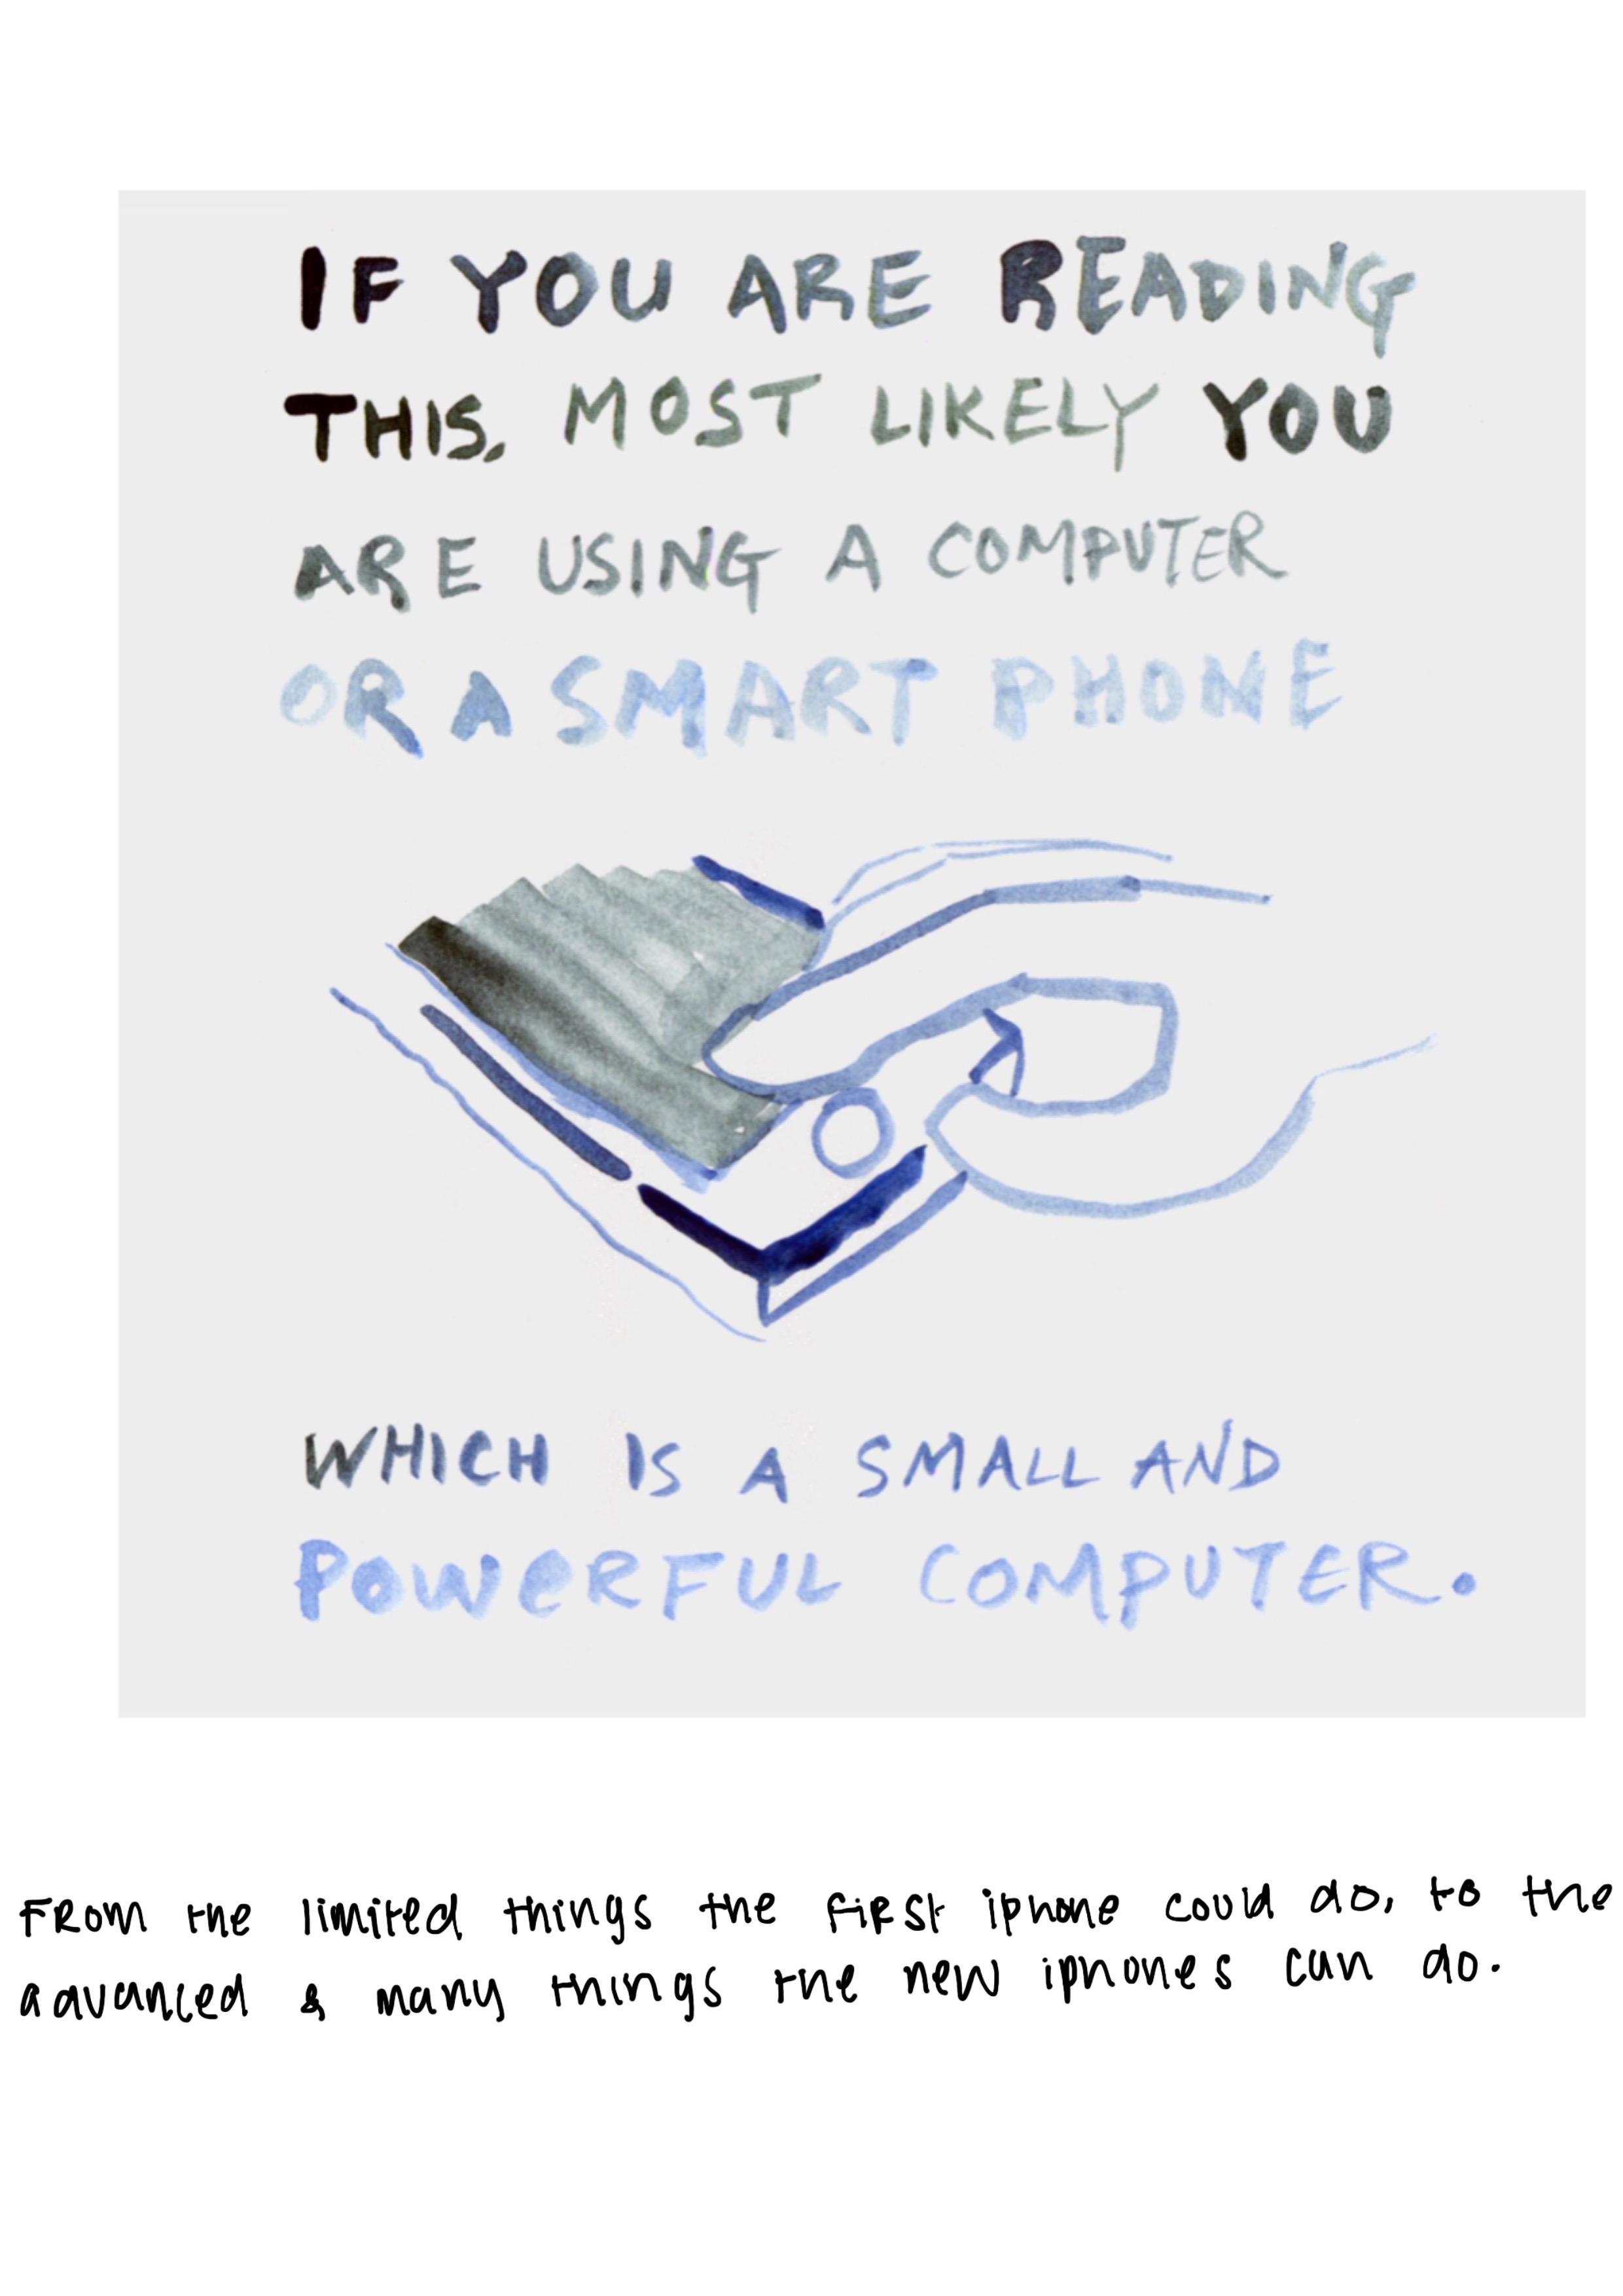 IF YOU ARE READING
THIS, MOST LIKELY YOU
ARE USING A COMPUTER
OR A SMART PHONE
WHICH IS A SMALL AND
POWERFUL COMPUTER.
From the limited things the first iphone could do, to the
advanced & many things the new iphones can do.